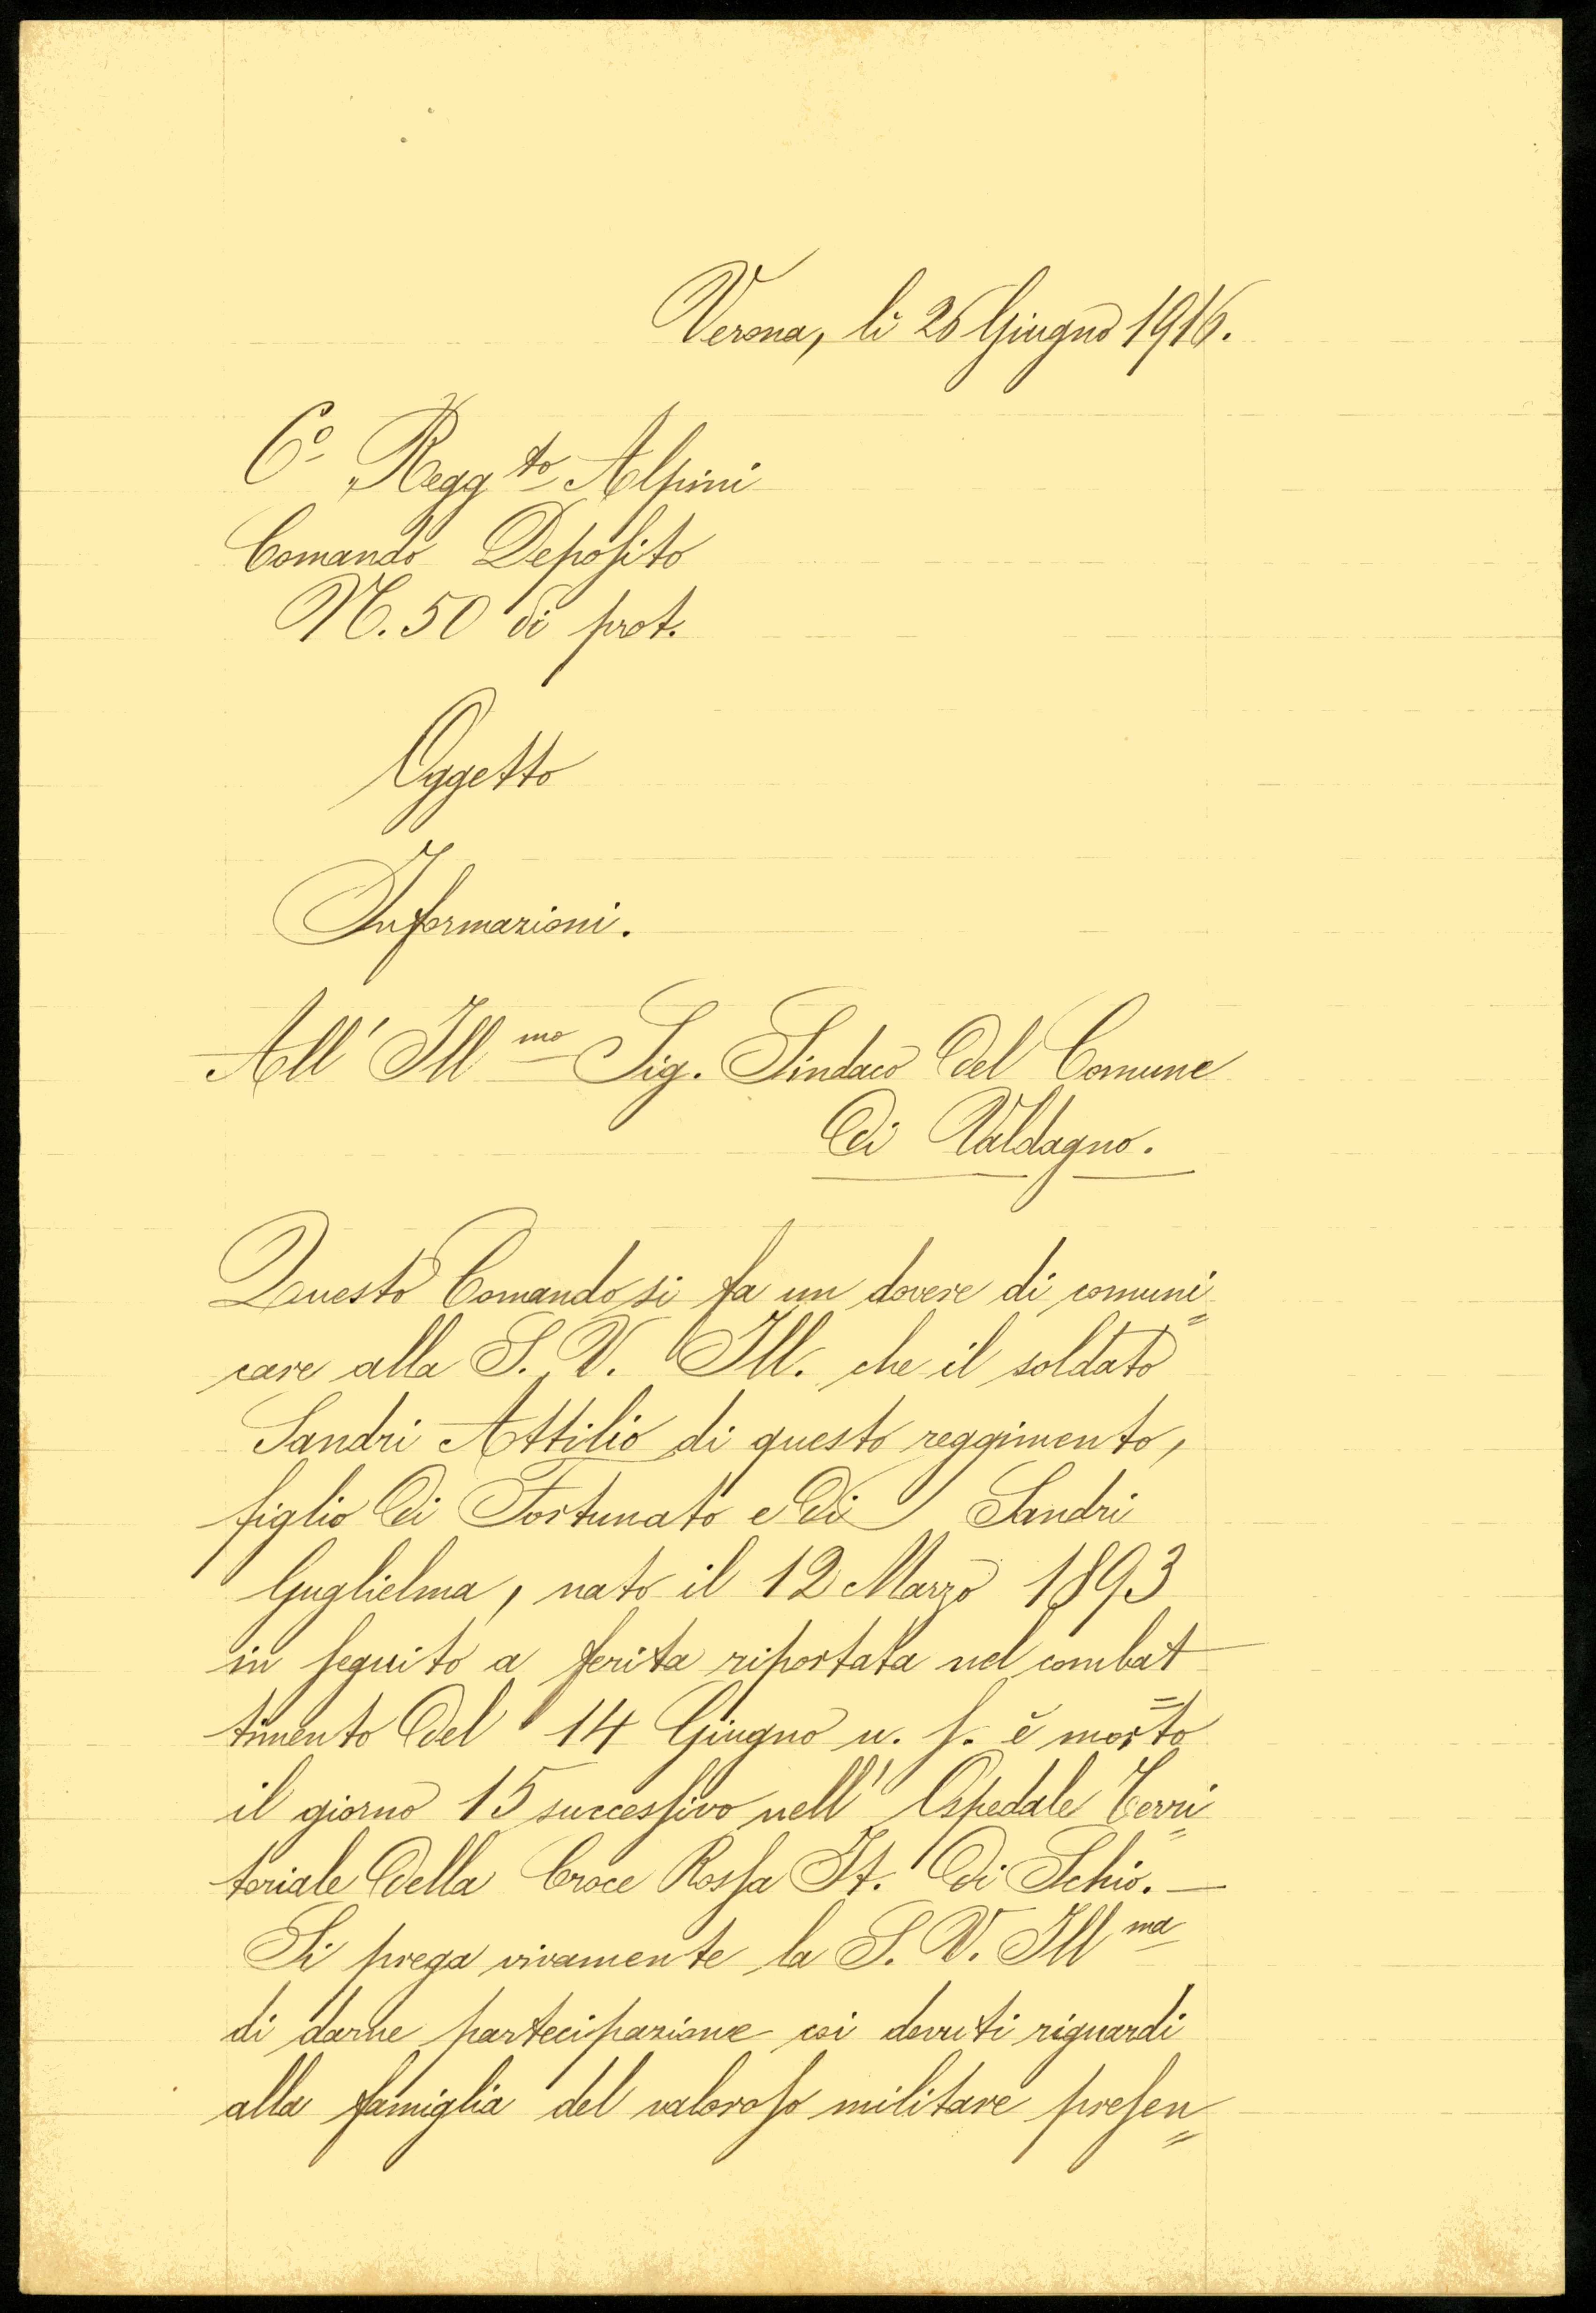 Verona, li 26 Giugno 1916.
6º Regg.to Alpini
Comando Deposito
N. 50 di prot.
Oggetto
Informazioni.
All' Ill mo Sig. Sindaco del Comune
di Valdagno.
Questo Comando si fa un dovere di comuni=
care alla S. V. Ill. che il soldato
Sandri Attilio di questo reggimento,
figlio di Fortunato e di Sandri
Guglielma, nato il 12 Marzo 1893
in seguito a ferita riportata nel combat=
timento del 14 Giugno u. s. è morto
il giorno 15 successivo nell' Ospedale Terri=
toriale della Croce Rossa It. di Schio. —
Si prega vivamente la S. V. Ill ma
di darne partecipazione coi dovuti riguardi
alla famiglia del valoroso militare presen=